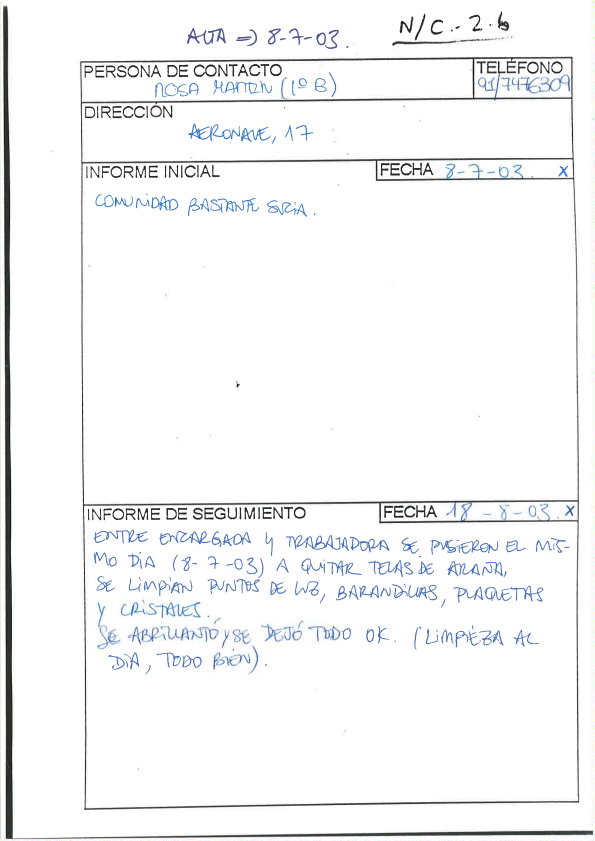 ALTA => 8-7-03.
N/C.-2.6
PERSONA DE CONTACTO
TELÉFONO
ROSA MARTIN (1º B)
91/7476309
DIRECCIÓN
AERONAVE, 17
INFORME INICIAL
FECHA 8-7-03. X
COMUNIDAD BASTANTE SUCIA.
INFORME DE SEGUIMIENTO
FECHA 18-8-03. X
ENTRE ENCARGADA Y TRABAJADORA SE PUSIERON EL MIS-
MO DÍA (8-7-03) A QUITAR TELAS DE ARAÑA,
SE LIMPIAN PUNTOS DE LUZ, BARANDILLAS, PLAQUETAS
Y CRISTALES.,
SE ABRILLANTO Y SE DEJÓ TODO OK. (LIMPIEZA AL
DÍA, TODO BIEN).